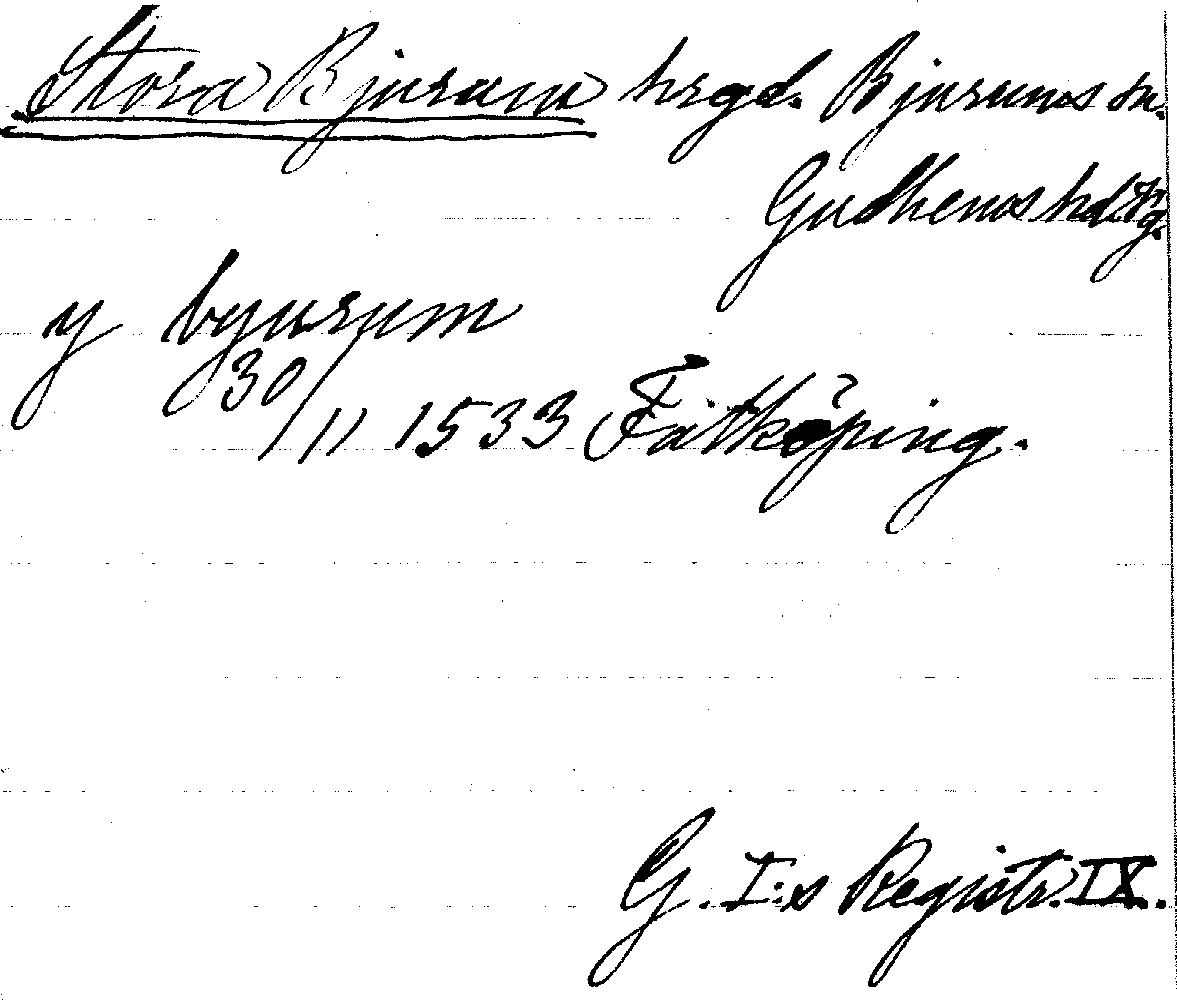 Stora Bjurum hrgd. Bjurums sn.
Gudhems hd. Vg.
y byurum
30/11 1533 Falköping.
G. I:s Registr. IX.